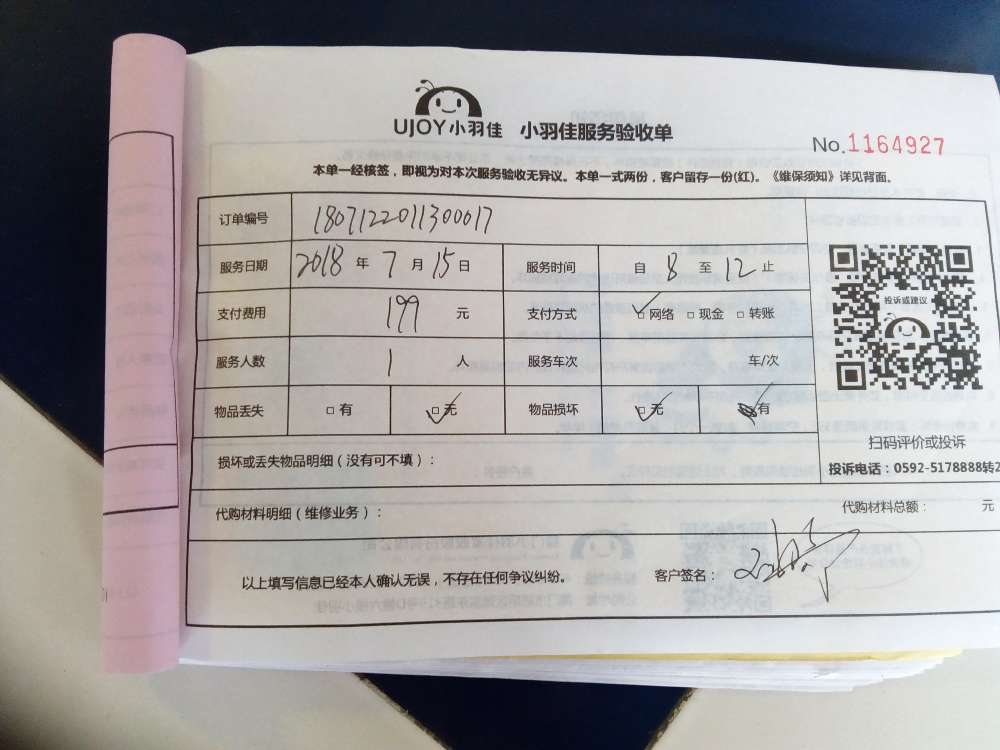 UJOY小羽佳 小羽佳服务验收单
No.1164927
本单一经核签，即视为对本次服务验收无异议。本单一式两份，客户留存一份(红)。《维保须知》详见背面。
订单编号 1807122011300017
服务日期 2018 年 7 月 15 日 服务时间 自 8 至 12 止
投诉或建议
支付费用 199 元 支付方式 □网络 □现金 □转账
服务人数 1 人 服务车次 车/次
物品丢失 □有 □无 物品损坏 □无 □有
扫码评价或投诉
损坏或丢失物品明细（没有可不填）：
投诉电话：0592-5178888转2
代购材料明细（维修业务）： 代购材料总额： 元
以上填写信息已经本人确认无误，不存在任何争议纠纷。 客户签名：